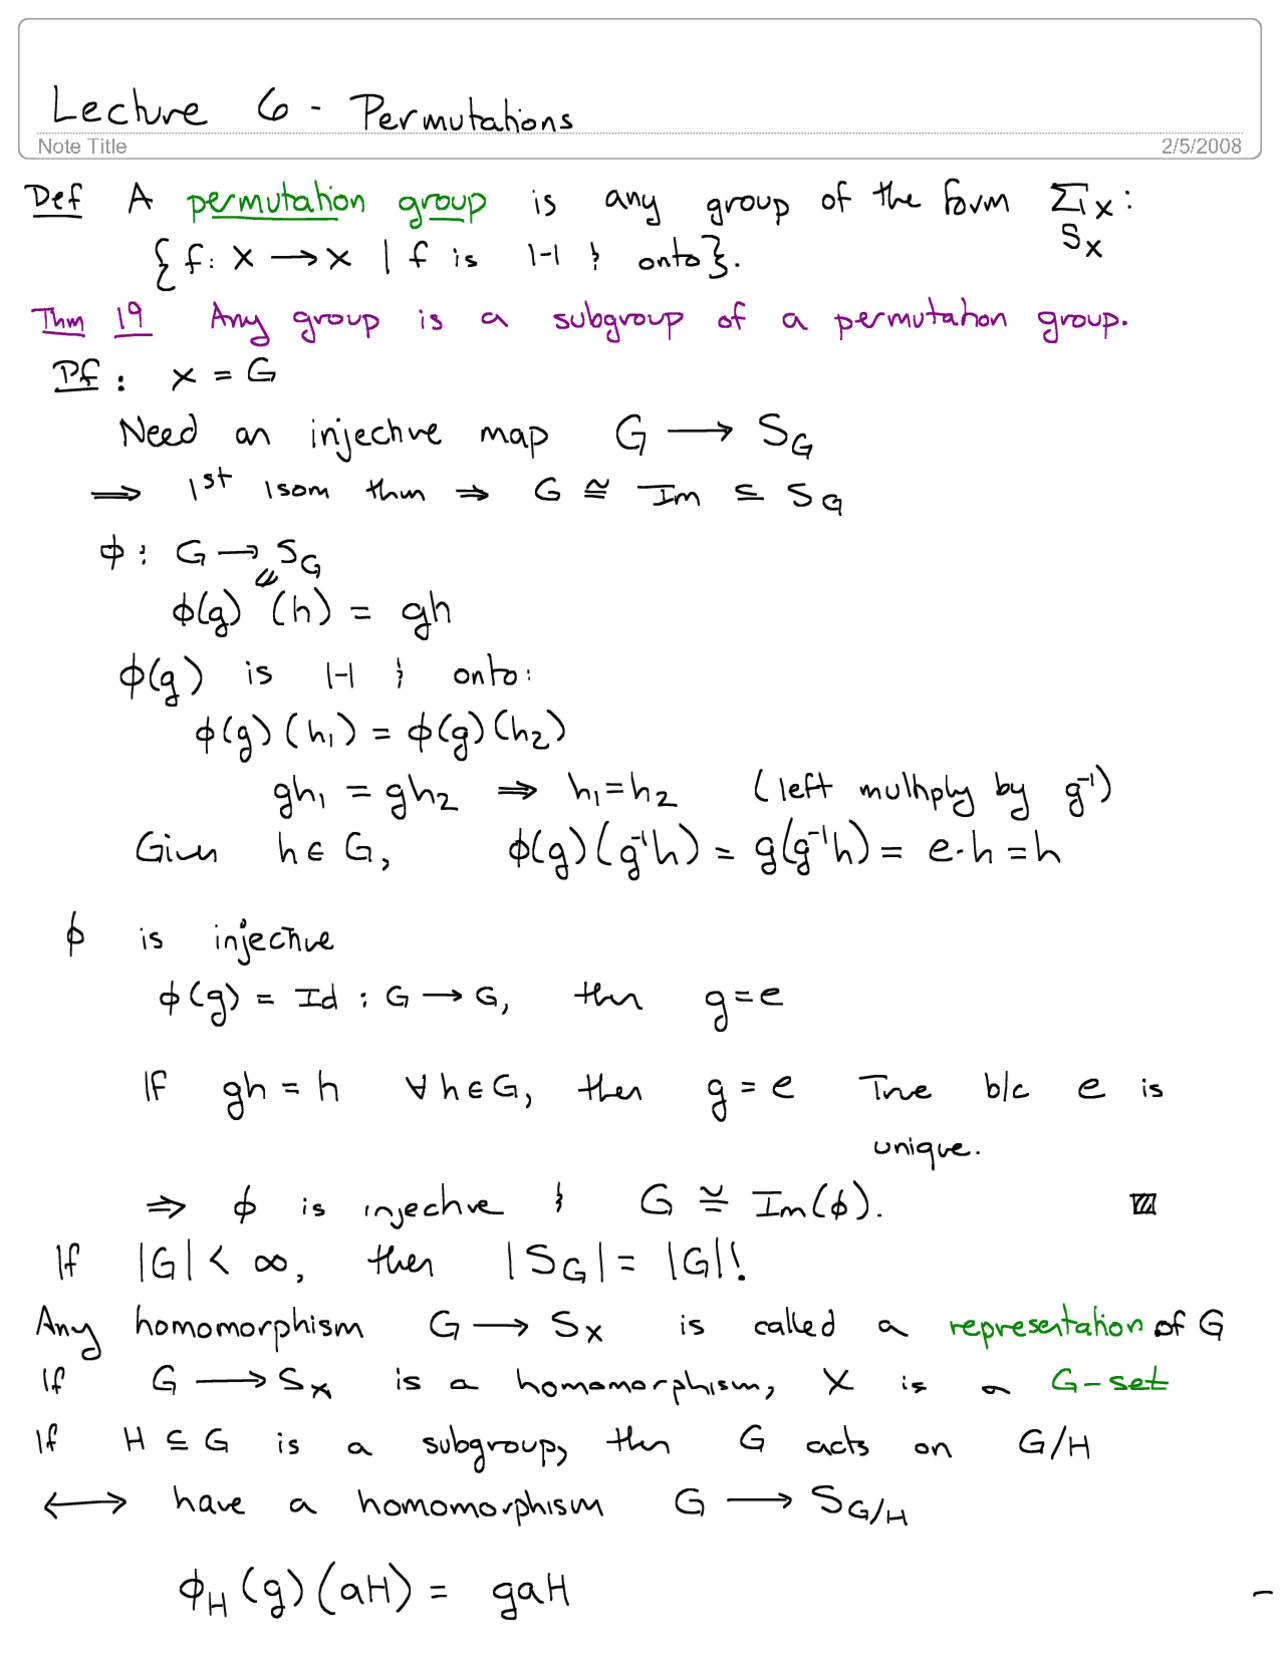 Lecture 6 - Permutations
Note Title 2/5/2008
Def A permutation group is any group of the form Σ_X:
S_X
{f: X → X | f is 1-1 & onto}.
Thm 19 Any group is a subgroup of a permutation group.
Pf: X = G
Need an injective map G → S_G
⇒ 1st Isom thm ⇒ G ≅ Im ⊆ S_G
φ: G → S_G
φ(g)(h) = gh
φ(g) is 1-1 & onto:
φ(g)(h₁) = φ(g)(h₂)
gh₁ = gh₂ ⇒ h₁=h₂ (left multiply by g⁻¹)
Given h ∈ G, φ(g)(g⁻¹h) = g(g⁻¹h) = e·h = h
φ is injective
φ(g) = Id : G → G, then g=e
If gh = h ∀h∈G, then g = e True b/c e is
unique.
⇒ φ is injective & G ≅ Im(φ).
If |G| < ∞, then |S_G| = |G|!
Any homomorphism G → S_X is called a representation of G
If G → S_X is a homomorphism, X is a G-set
If H ⊆ G is a subgroup, then G acts on G/H
↔ have a homomorphism G → S_{G/H}
φ_H(g)(aH) = gaH